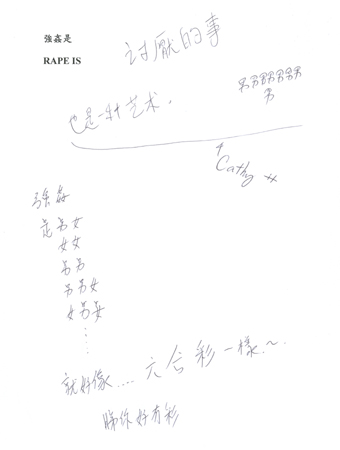 強姦是
RAPE IS
讨厭的事
男男男男男男
男
也是一种艺术,
Cathy xx
强姦
是男女
女女
男男
男男女
女男女
......
就好像.... 六合彩一樣.~
睇你好冇彩